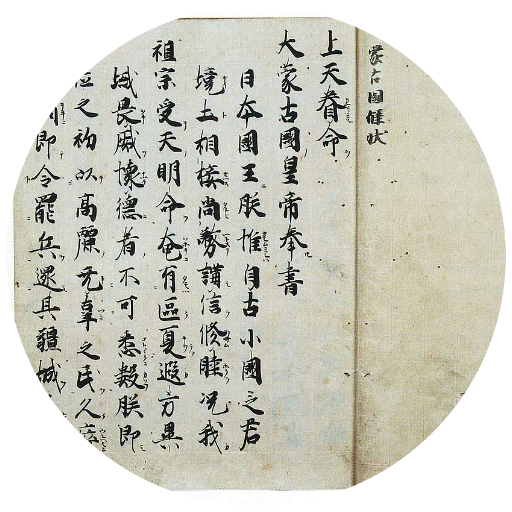 蒙古國牒状
上天眷命
大蒙古國皇帝奉書
日本國王朕惟自古小國之君
境土相接尚務講信修睦况我
祖宗受天明命奄有區夏遐方異
域畏威懐德者不可悉數朕即
位之初以高麗无辜之民久瘁
即令罷兵還其疆域